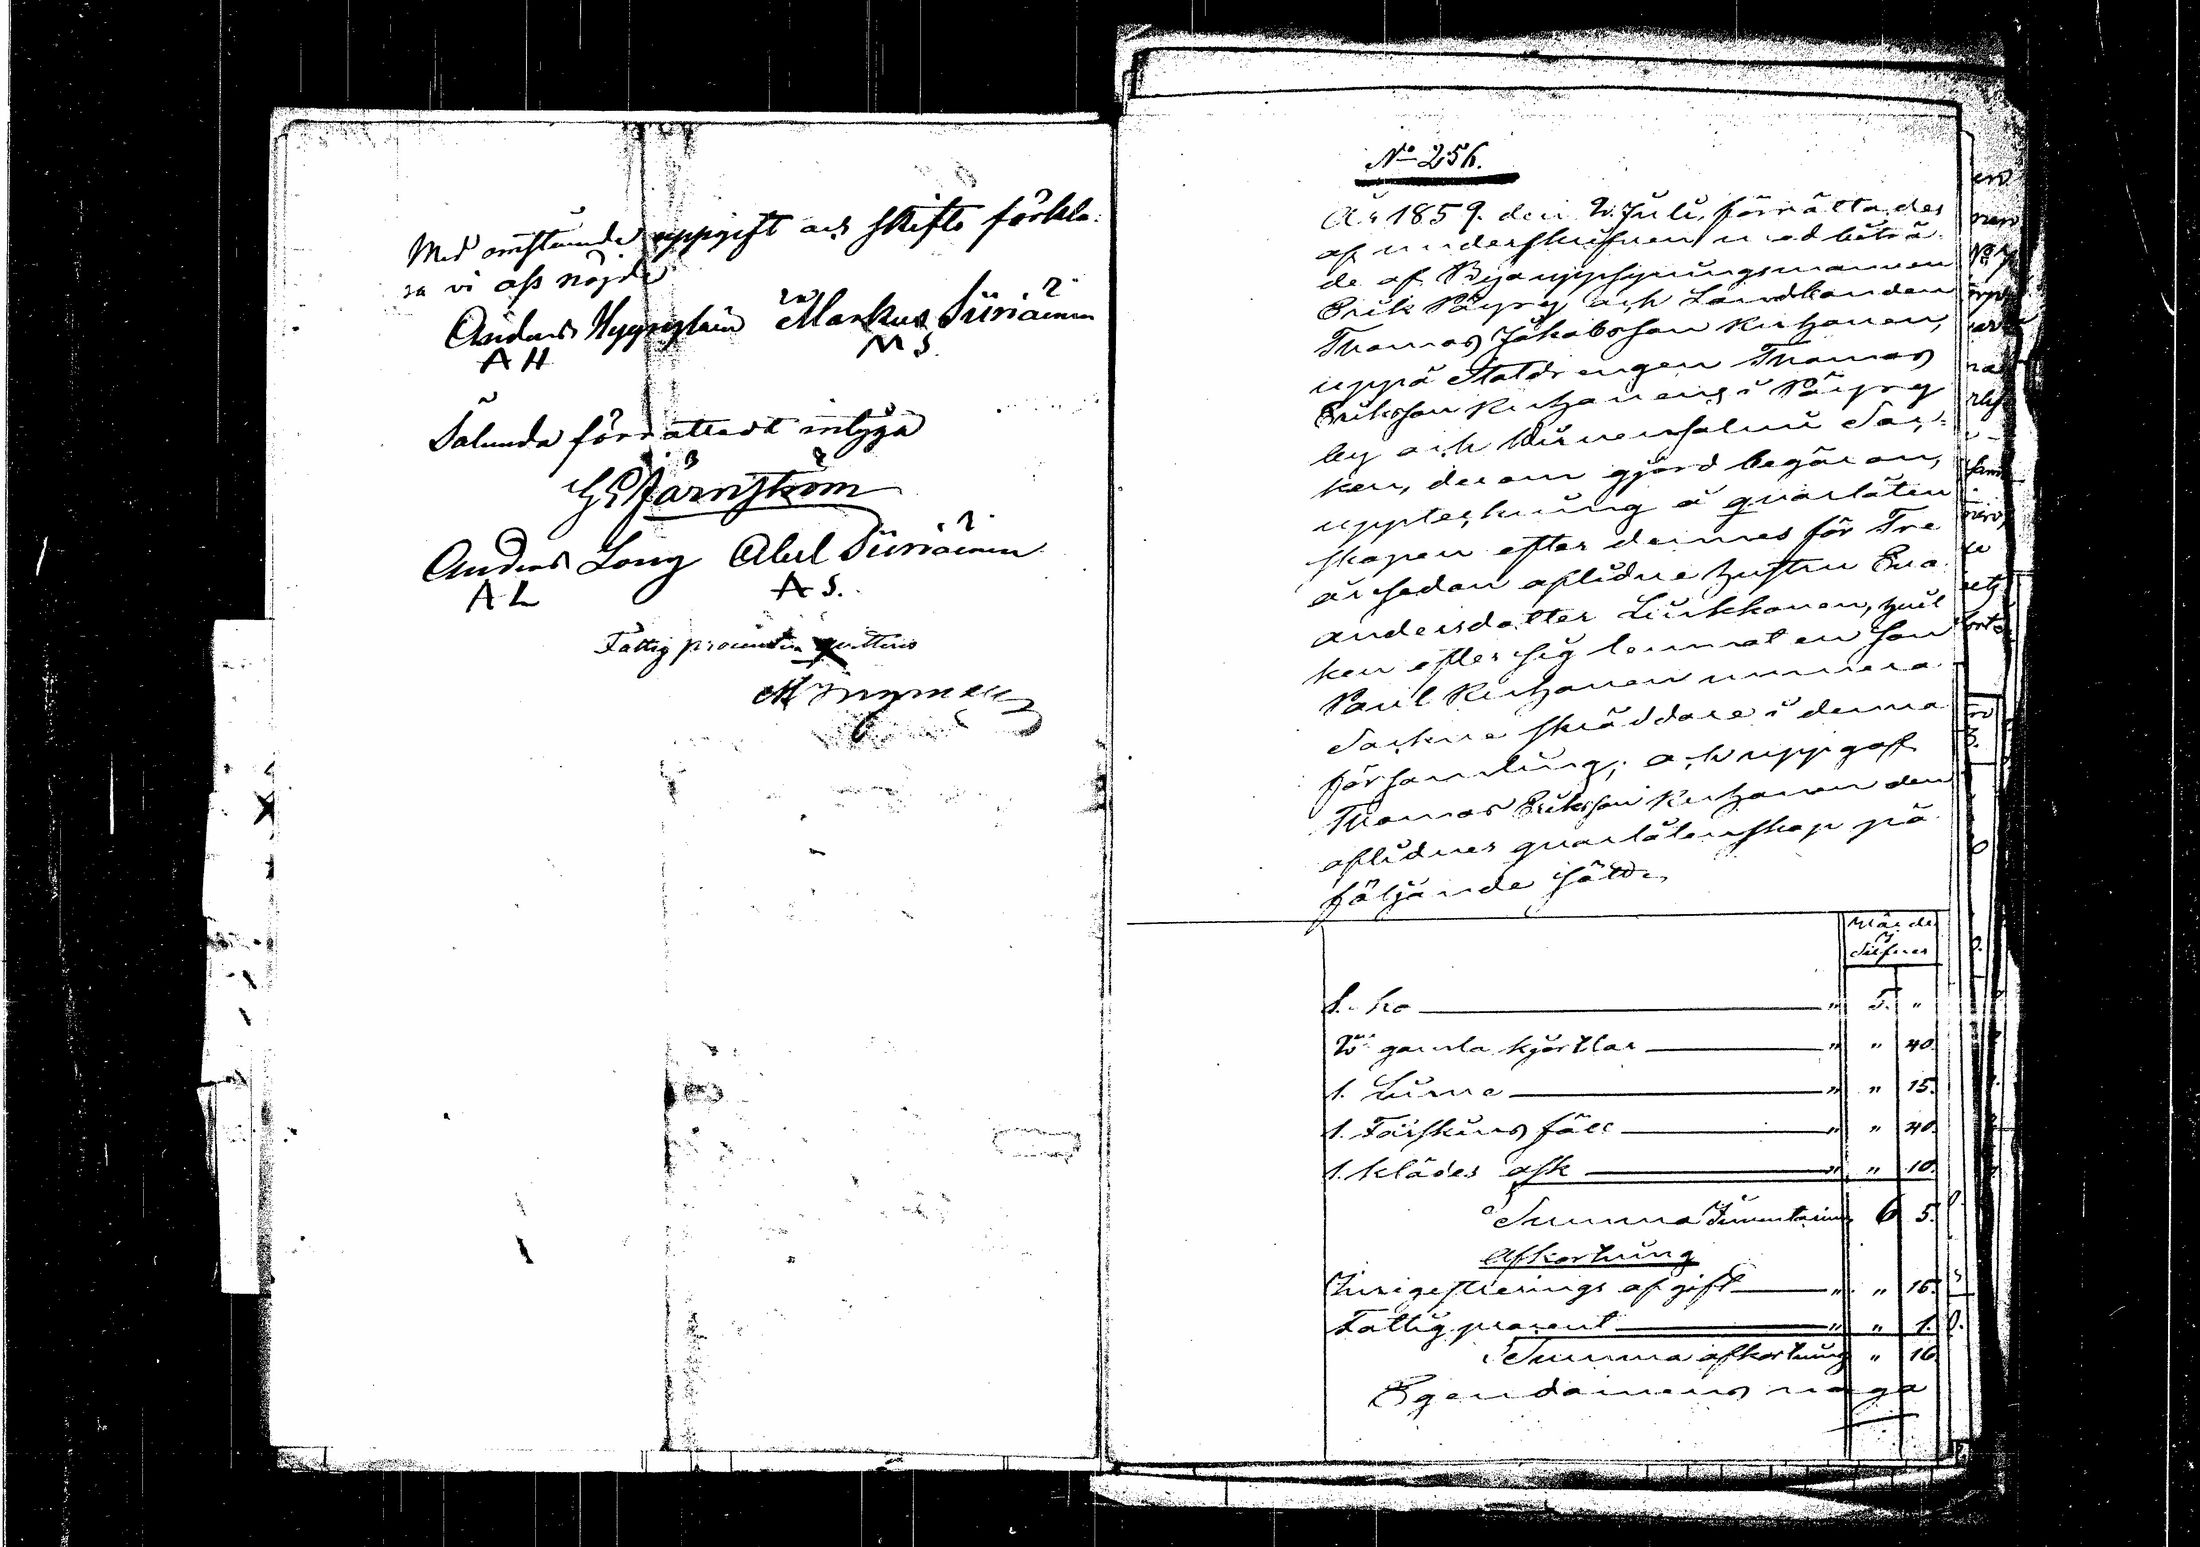 Med omstående uppgift och skifte förkla-
ra vi oss nöjde
Anders Hyppylain Markus Siiriäinen
A H M S.
Sålunda förrättadt intyga
Järnström
Anders Long Abel Siiriäinen
A L A S.
Fattig procenten quitteras
No 256.
År 1859. den 2. Juli, förrättades
af underskrifven med biträ-
de af Byauppsyningsmannen
Erik Pöyry och Landbonden
Thomas Jakobsson Kerhonen,
uppå Statdrengen Thomas
Eriksson Kerhonens i Pöyry
by och Kuvensalmi Soc-
ken, derom gjord begäran,
uppteckning å quarlåten
skapen efter dennes för Tre
år sedan aflidne hustru Eva
Andersdotter Liukkonen, hvil
ken efter sig lemnat en son
Paul Kerhonen numera
Sockne skräddare i denna
församling; och uppgaf
Thomas Eriksson Kerhonen den
aflidnes quarlåtenskap på
följande sätt,
Värde
Silfver
1. ko " 5. "
2ne gamla kjortlar " " 40.
1. Lärne " " 15.
1. Fårskins fäll " " 40.
1. klädes ask " " 10.
Summa Inventarium 6 5.
Afkortning
Inregistrerings afgift " " 15.
Fattig procent " " 1.
Summa afkortning " 16.
Egendomens noga